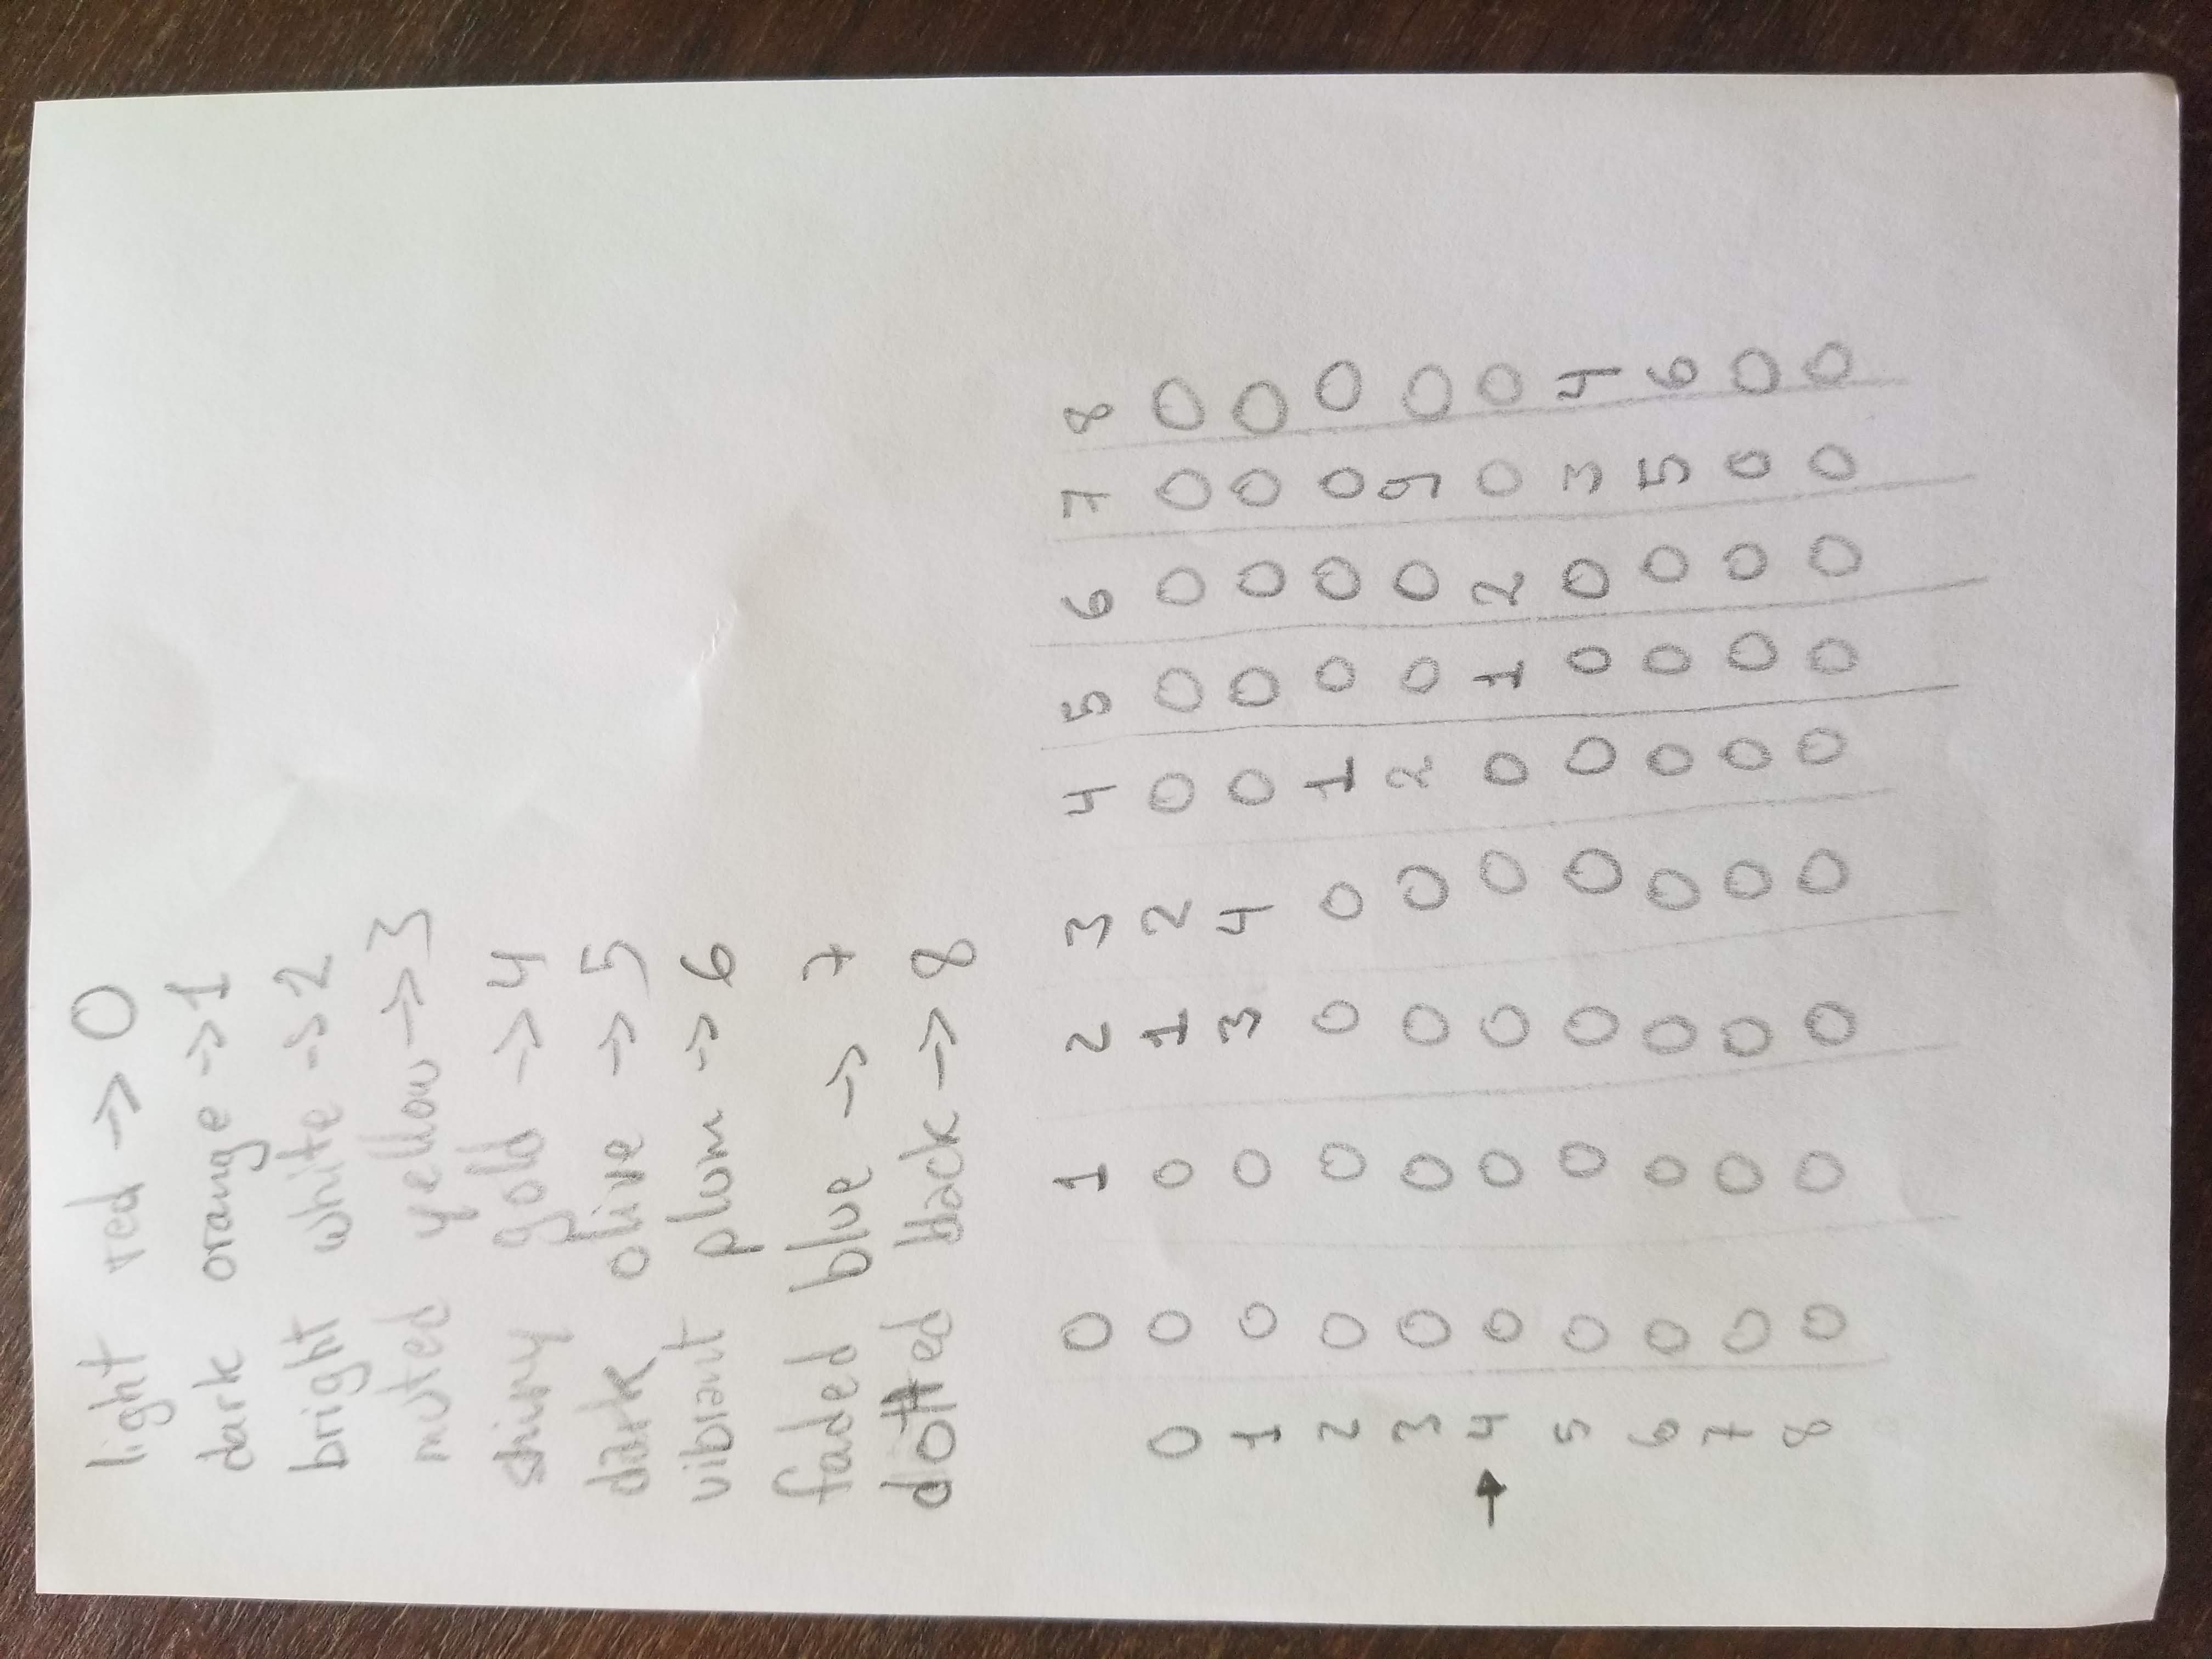 light red -> 0
dark orange -> 1
bright white -> 2
muted yellow -> 3
shiny gold -> 4
dark olive -> 5
vibrant plum -> 6
faded blue -> 7
dotted black -> 8
0 1 2 3 4 5 6 7 8
0 0 0 1 2 0 0 0 0 0
1 0 0 3 4 0 0 0 0 0
2 0 0 0 0 1 0 0 0 0
3 0 0 0 0 2 0 0 9 0
→ 4 0 0 0 0 0 1 2 0 0
5 0 0 0 0 0 0 0 3 4
6 0 0 0 0 0 0 0 5 6
7 0 0 0 0 0 0 0 0 0
8 0 0 0 0 0 0 0 0 0